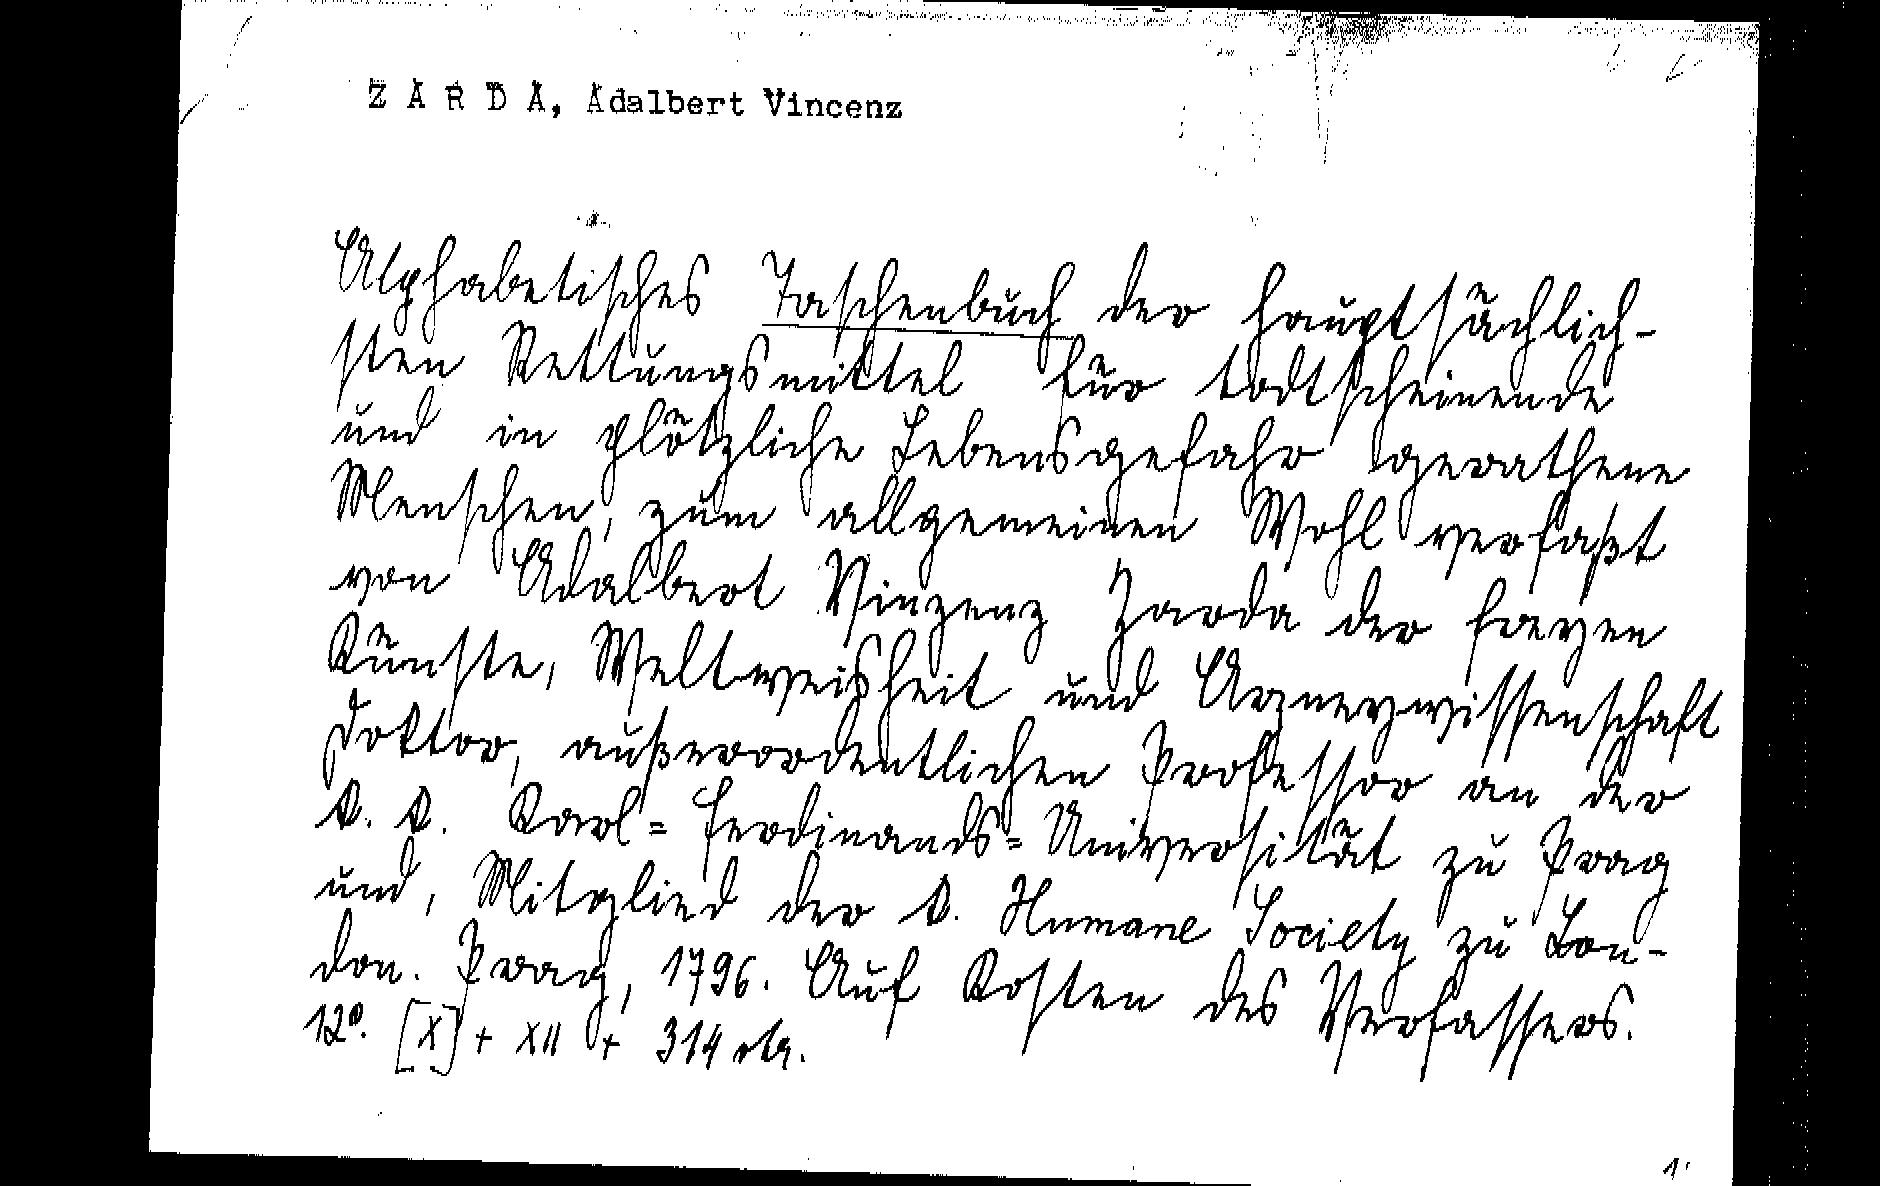 Z A R D A, Adalbert Vincenz
Alphabetisches Taschenbuch der hauptsächlich-
sten Rettungsmittel für todtscheinende
und in plötzliche Lebensgefahr gerathene
Menschen, zum allgemeinen Wohl verfaßt
von Adalbert Vinzenz Zarda der freyen
Künste, Weltweisheit und Arzneywissenschaft
Doktor, außerordentlichen Professor an der
k. k. Karl=Ferdinands=Universität zu Prag
und, Mitglied der k. Humane Society zu Lon-
don. Prag, 1796. Auf Kosten des Verfassers.
12°. [X] + XII + 314 str.
1.